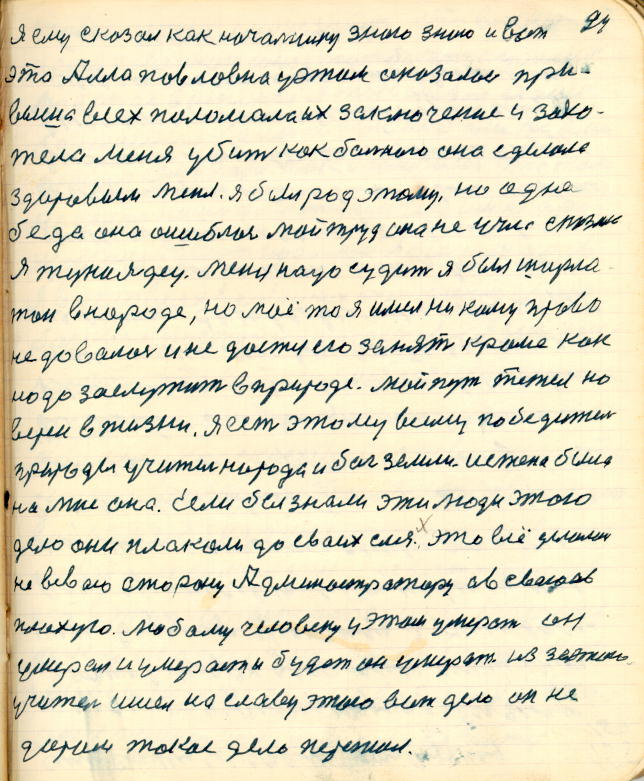 94
Я ему сказал как начальнику этого знаю и вот
это Алла повловна у этом оказалось при-
всех поломала их заключение и захо-
тела меня убит как болного она сделала
здоровым меня. я был род этому, но одна
беда она ошиблоя мой труд она не учла
я тунаядец. меня надо судит я был шарла
тан в народе, но моё то я имел ни кому право
не довалоя и не его занят кроме как
надо заслужит в природе. мой пут тежел но
верен в жизни. я ест этому всему победител
природы учител народа и бог земли. истена была
на мне она. Если бы знали эти люди этого
дело они плакали до своих слёз. это всё делалоя
не в свою сторону Администратору а в
плохую. любому человеку у этом умерат он
умерал и умерат и будет он умерат. из за этого
учител имел на славу этого вот дело он не
даром такое дело